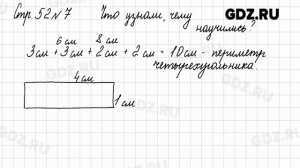 Стр. 52 №7 Что узнали, чему
научились?
GDZ.RU
6см 8см
3см + 3см + 2см + 2см = 10см - периметр
четырехугольника.
4см
1см
GDZ.RU